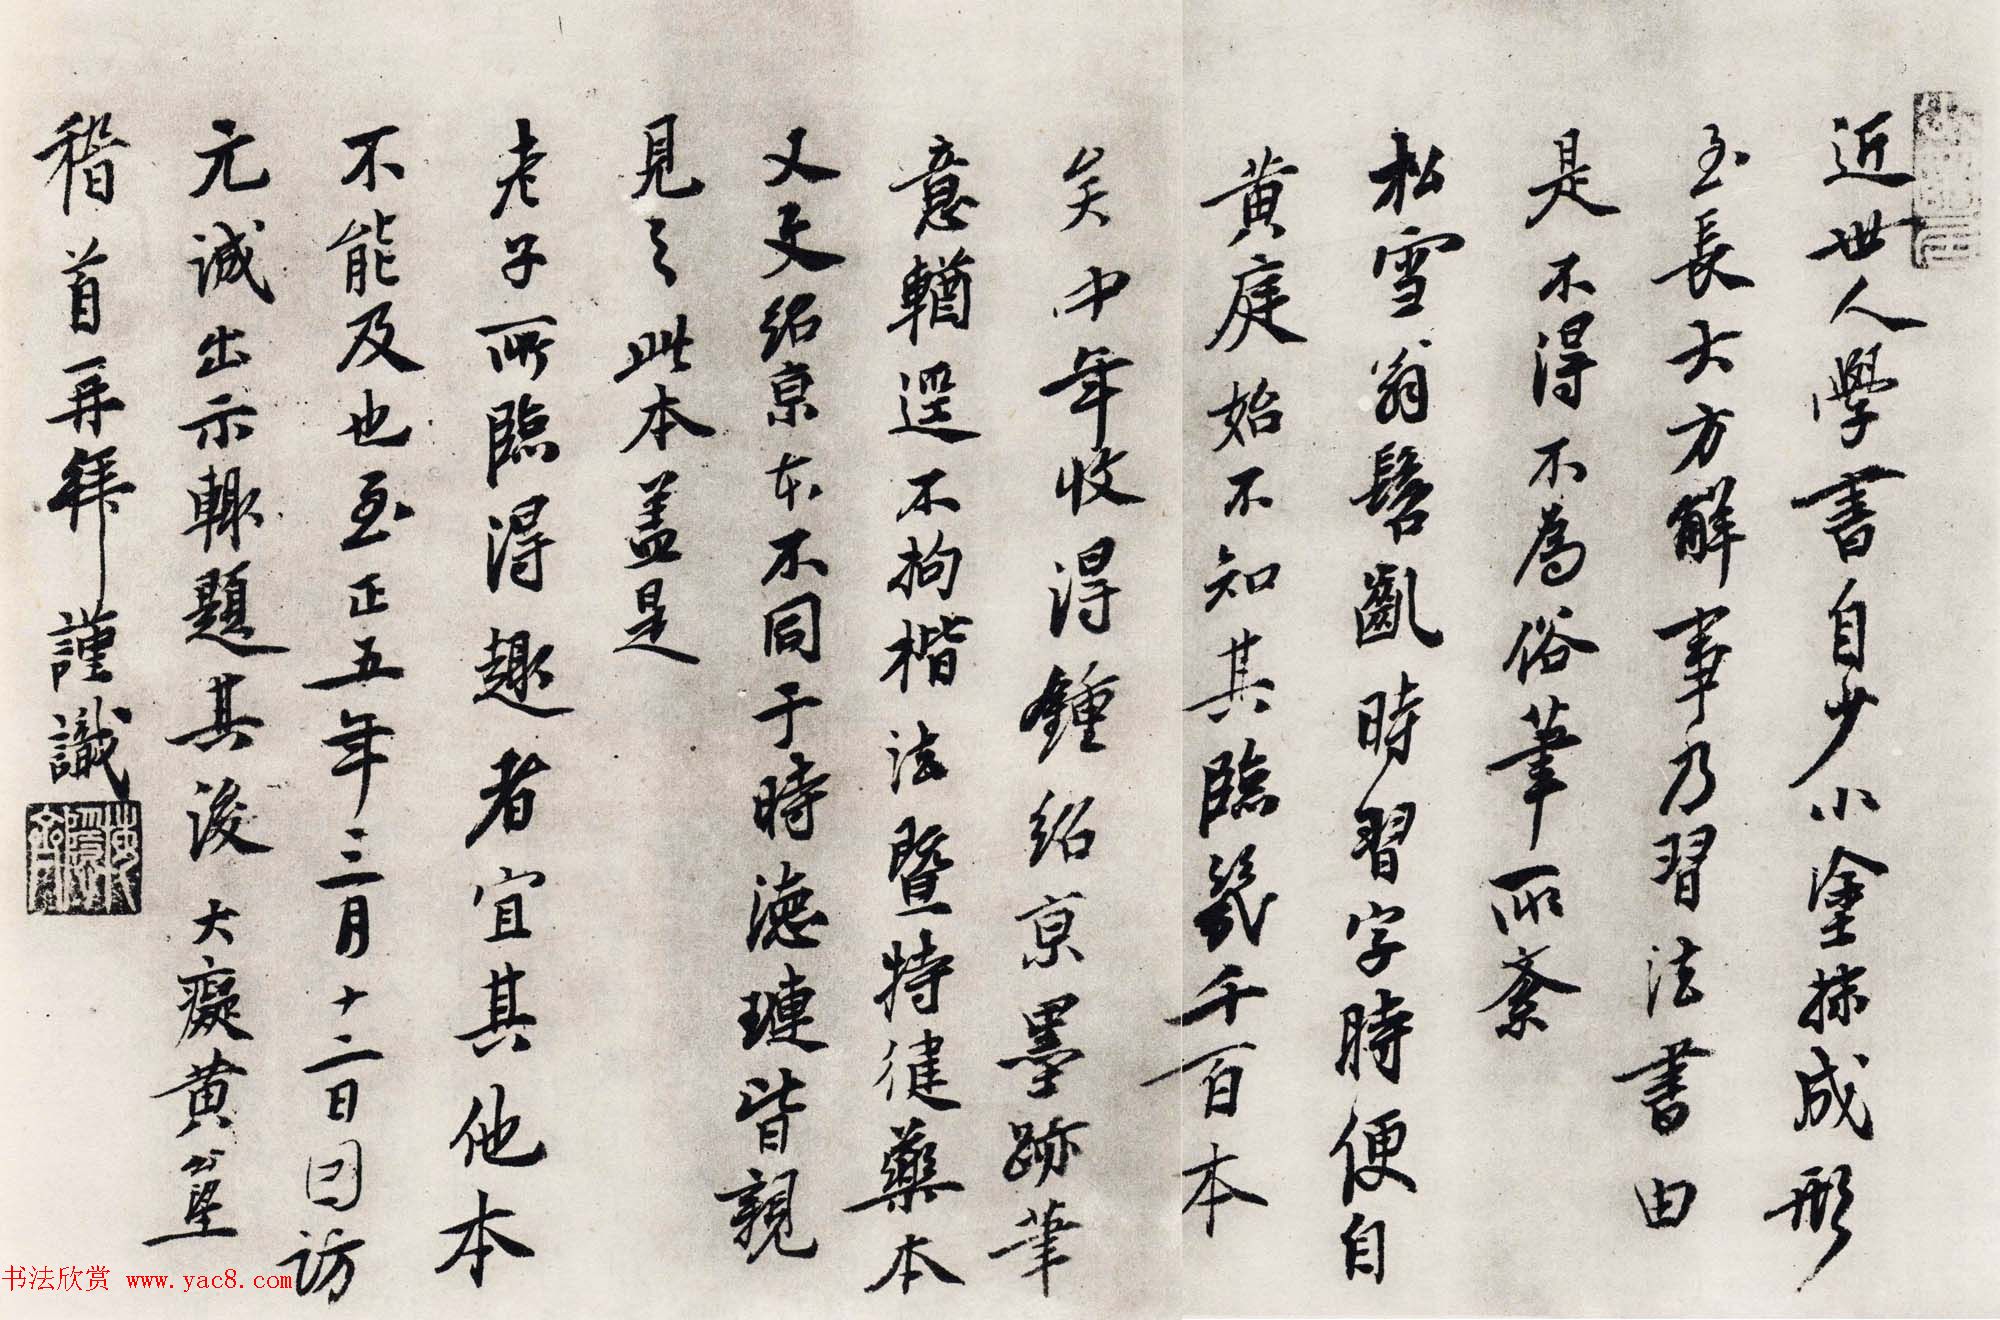 近世人學書自少小塗抹成形
至長大方解事乃習法書由
是不得不為俗筆所紊
松雪翁髫齔時習字時便自
黃庭始不知其臨幾千百本
矣中年收得鍾紹京墨跡筆
意輶逕不拘楷法暨特健藥本
又叉紹京本不同于時德璉皆親
見之此本蓋是
老子所臨得趣者宜其他本
不能及也至正五年三月十二日因訪
元誠出示輙題其後 大癡黃公望
稽首再拜謹識
书法欣赏 www.yac8.com